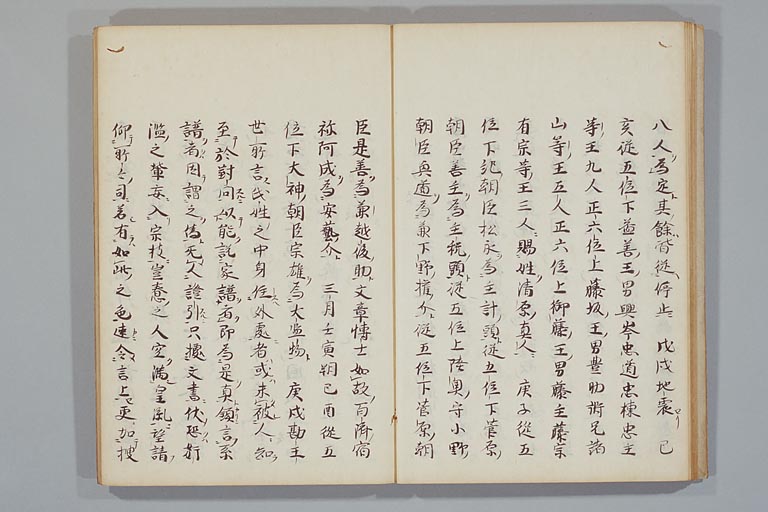 八人為定其餘皆從停止　戊戌地震　己
亥從五位下益善王男興岑忠道忠棟忠主
等王九人正六位上藤坂王男豊助時兄諸
山等王五人正六位上御藤王男藤主藤宗
有宗等王三人賜姓清原真人　庚子從五
位下紀朝臣松永為主計頭從五位下菅原
朝臣善主為主税頭從五位上陸奥守小野
朝臣興道為兼下野權介從五位下菅原朝
臣是善為兼越後助文章愽士如故百濟宿
祢阿成為安藝介　三月壬寅朔己酉從五
位下大神朝臣宗雄為大监物　庚戌勘主
世所言氏姓之中身位外處者或未被人知
至於對問奴能託家譜者即為是真領言系
譜者因謂之偽死人證引只據文書伏恐奸
濫之輩妄入宗枝豈意之人空満皇風望請
仰所之司若有如此之色速令言上更加搜